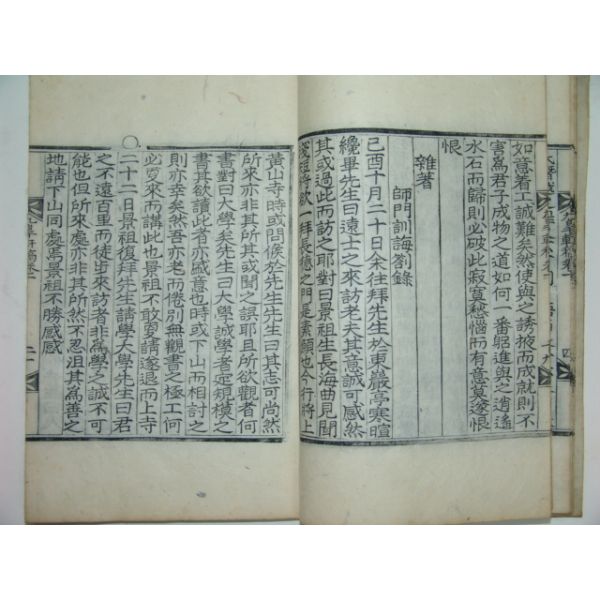 如意着工誠難矣然使與之誘掖而成就則不
害爲君子成物之道如何一番躬進與公逍遙
水石而歸則必破此寂寞愁惱而有意莫遂恨
恨
雜著
師門訓誨劄錄
己酉十月二十日余往拜先生於東巖亭寒暄
纔畢先生曰遠士之來訪老夫其意誠可感然
其或過此而訪之耶對曰景祖生長海曲見聞
淺短將欲一拜長德之門是素願也今行將上
黃山寺時或問候於先生先生曰其志可尚然
所來亦非其所其或聞之誤耶且所欲觀者何
書對曰大學矣先生曰大學誠學者定規模之
書其欲讀此者亦感意也時或下山而相討之
則亦幸矣然吾亦老而倦別無觀書之極工何
必要來而講此也景祖不敢更請遂退而上寺
二十二日景祖復拜先生請學大學先生曰君
之不遠百里而徒步來訪者非爲學之誠不可
能也但所來處亦非其所然不忍沮其爲善之
地請下山同處焉景祖不勝感感